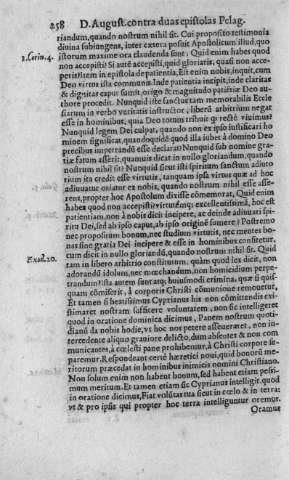 258 D. August. contra duas epistolas Pelag.
riandum, quando nostrum nihil sit. Cui proposito testimonia
diuina subiungens, inter cætera posuit Apostolicum illud, quo
1.Corin.4. istorum maxime ora claudenda sunt: Quid enim habes quod
non accepisti? Si aut accepisti, quid gloriaris, quasi non acce-
peris? Item in epistola de patientia, Est enim nobis, inquit, cum
Deo virtus ista communis. Inde patientia incipit, inde claritas
& dignitas caput sumit. origo & magnitudo patiētiæ Deo au-
thore procedit. Nunquid iste sanctus tam memorabilis Ecclesiarum
in verbo veritatis instructor, liberū arbitriū negat
esse in hominibus, quia Deo totum tribuit qͥ recte viuimus?
Nunquid legem Dei culpat, quando non ex ipso iustificari ho
minem significat, quandoquidē quod illa iubet à domino Deo
precibus impetrandū esse declarat? Nunquid sub nomine gra-
tiæ fatum asserit, quamuis dicat in nullo gloriandum, quando
nostrum nihil sit? Nunquid sicut isti spiritum sanctum adiuto
rium ita credit esse virtutis, tanquam ipsa virtus quæ ad hoc
adiuuatur oriatur ex nobis, quando nostrum nihil esse asse-
rens, propter hoc Apostolum dixisse cōmemorat, Quid enim
habes quod non accepisti? virtutēmqͥ excellentissimā, hoc est
patientiam, non à nobis dicit incipere, ac deinde adiuuari spi-
ritu Dei, sed ab ipso caput, ab ipso originē sumere? Postremo
nec propositum bonum, nec studium virtutis, nec mentes bo-
nas sine gratia Dei incipere & esse in hominibus confitetur,
cum dicit in nullo gloriandū, quando nostrum nihil sit. Quid
tam in libero arbitrio constitutum. quàm quod lex dicit, non
Exod.20. adorandū idolum, nec mœchandum, non homicidium perpe-
trandum? Ista autem sunt atqͥ huiusmodi crimina, quæ si quis-
quam cōmiserit, à corporis Christi cōmunione remoueatur,
Et tamen si beatissimus Cyprianus his non cōmittendis exi-
stimaret nostram sufficere voluntatem, non sic intelligeret
quod in oratione dominica dicimus, Panem nostrum quoti-
dianū da nobis hodie, vt hoc nos petere asseueraret, non in-
tercedente aliquo grauiore delicto, dum absentes & non com
municantes, à cœlesti pane prohibentur, à Christi corpore se-
paremur. Respondeant certè hæretici noui, quid bonorū me-
ritorum præcedat in hominibus inimicis nomini Christiano.
Non solum enim non habent bonum, sed habent etiam pessi-
mum meritum. Et tamen etiam sic Cyprianus intelligit. quod
in oratione dicimus, Fiat volūtas tua sicut in cœlo & in terra:
vt & pro ipsis qui propter hoc terra intelliguntur oremus.
Oramus